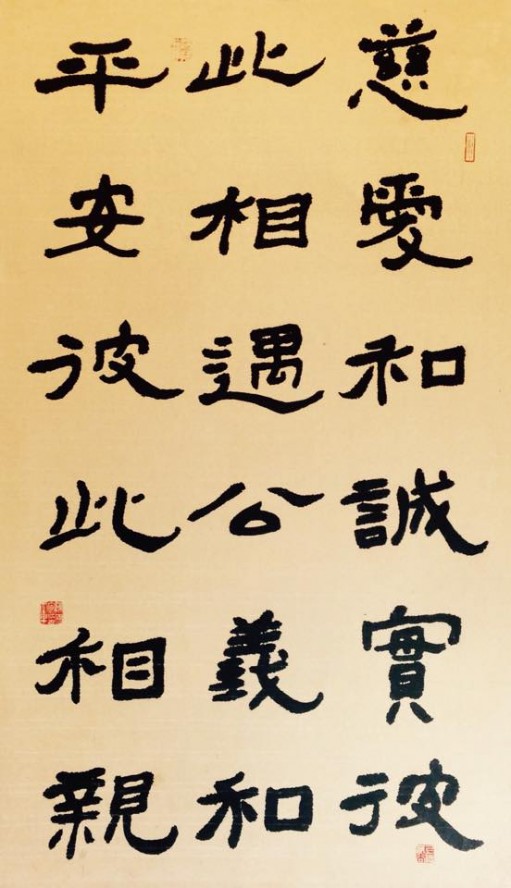 慈愛和誠實彼
此相遇公義和
平安彼此相親